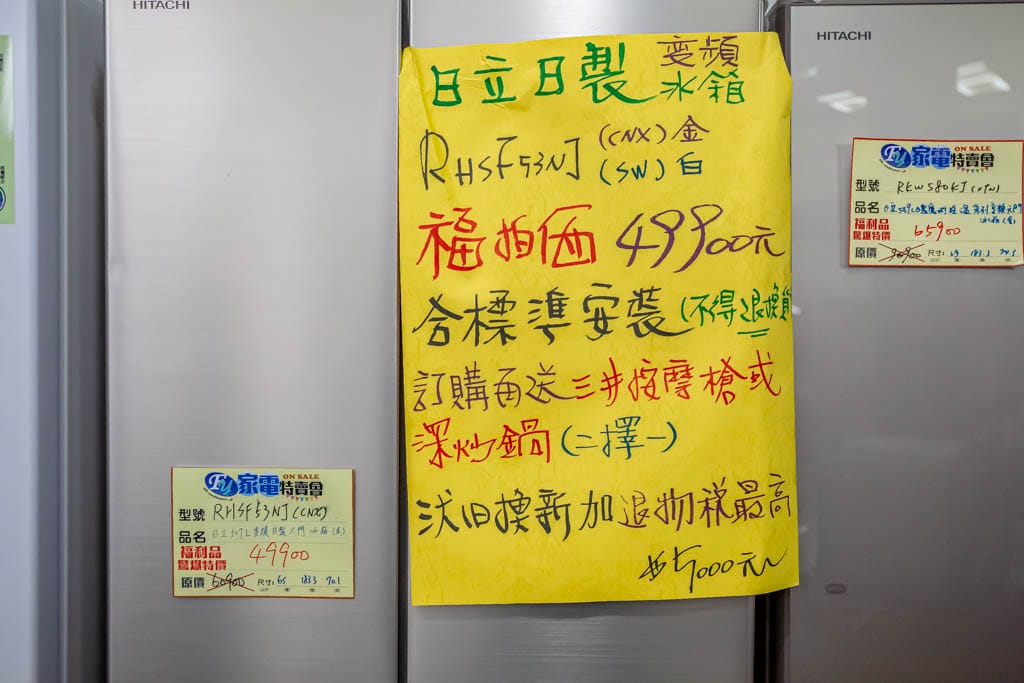 HITACHI
HITACHI
日立日製 变頻
冰箱
RHSF53NJ (CNX)金
(SW)白
福拍価 49900元
含標準安裝(不得退換貨
訂購再送三井按摩槍或
深炒鍋(二擇一)
汰旧換新加退物稅最高
5000元
FY 家電特賣會 ON SALE
型號 RHSF53NJ(CNX)
品名 日立507L變頻日製六門冰箱(金)
福利品
驚爆特價 49900
原價 60900 尺寸:65 183.3 70.1
FY 家電特賣會 ON SALE
型號
品名
冰箱
福利品
驚爆特價 65900
原價 90900 尺寸: